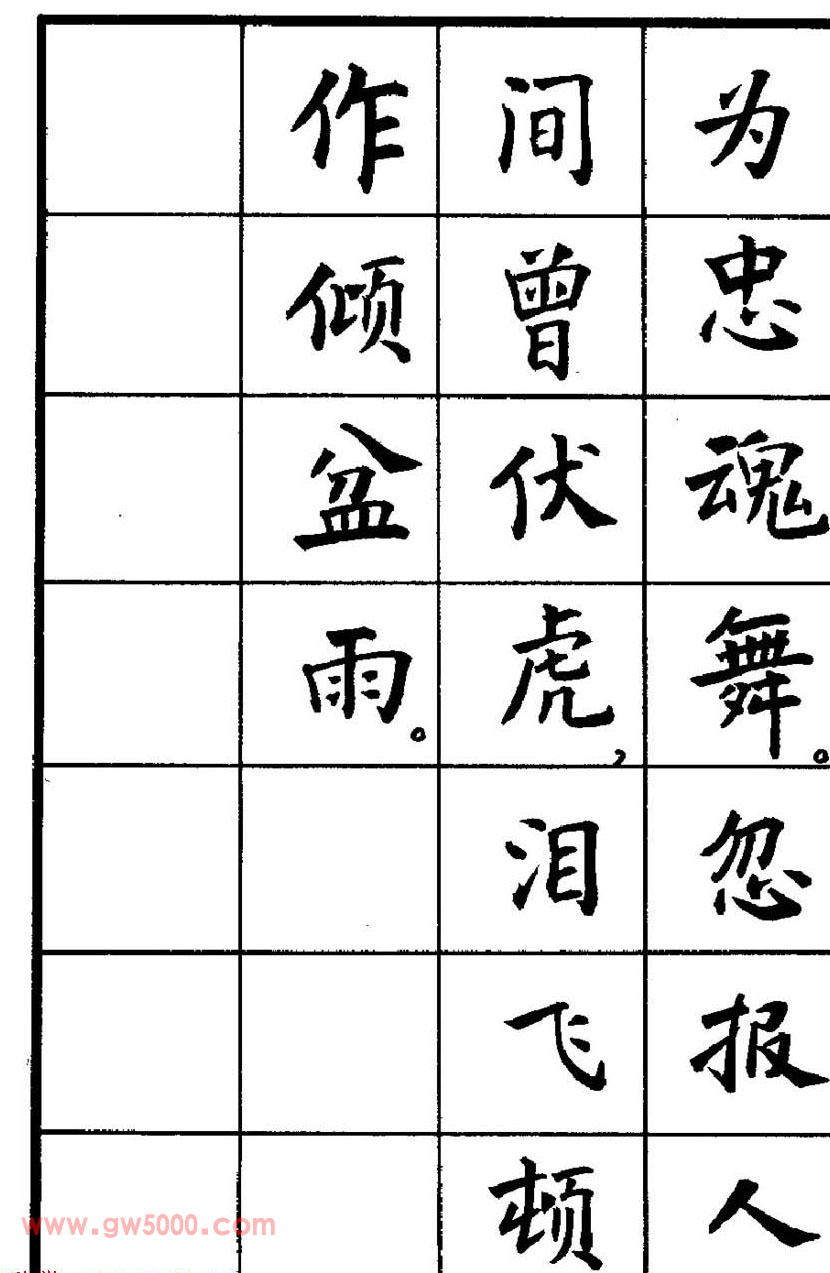 为忠魂舞。忽报人
间曾伏虎,泪飞顿
作倾盆雨。
www.gw5000.com